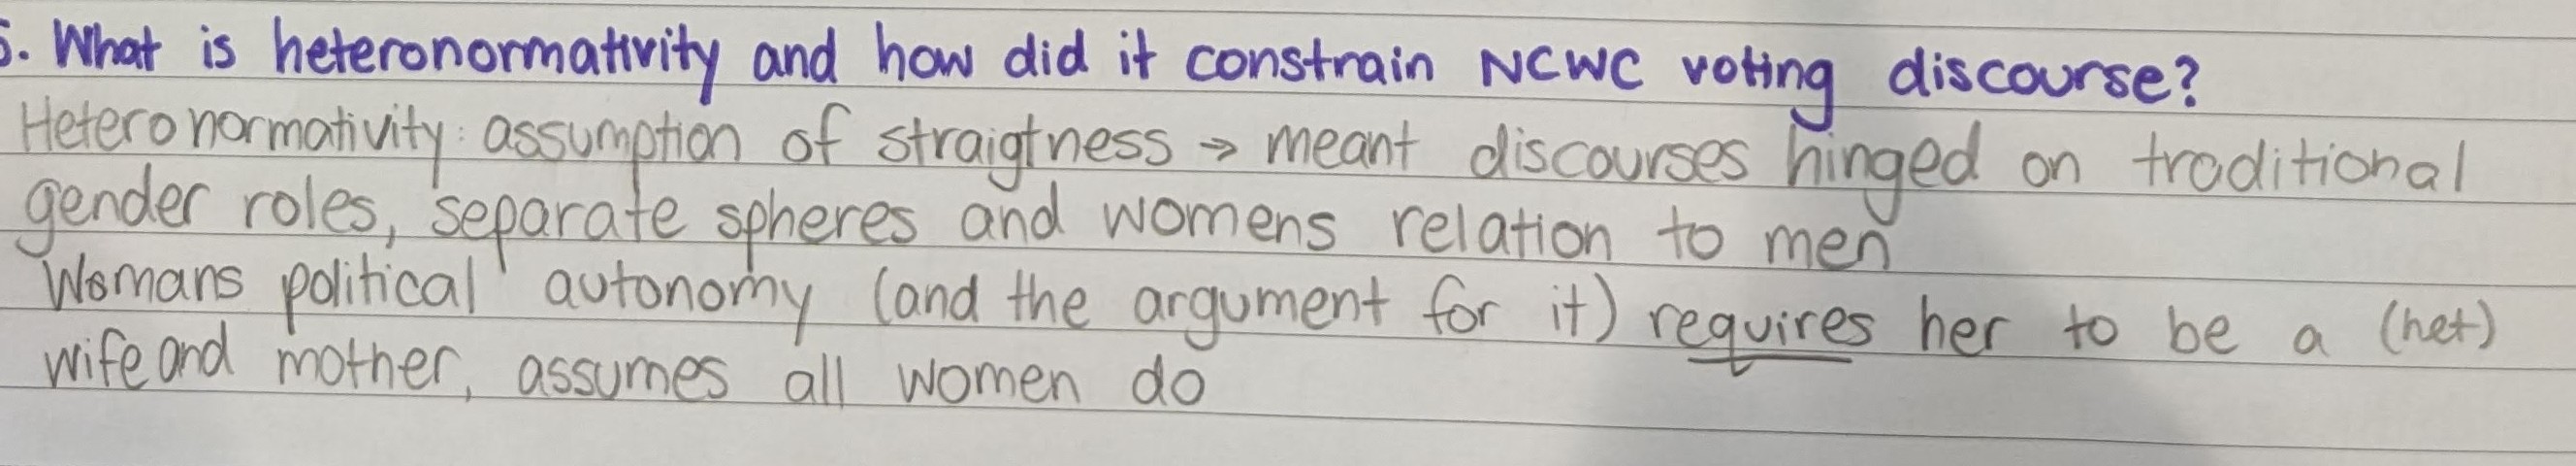 5. What is heteronormativity and how did it constrain NCWC voting discourse?
Heteronormativity: assumption of straigtness → meant discourses hinged on traditional
gender roles, separate spheres and womens relation to men
Womans political autonomy (and the argument for it) requires her to be a (het)
wife and mother, assumes all women do